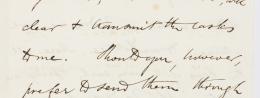 clear & transmit the casks
to me. Should you, however,
prefer to send them through